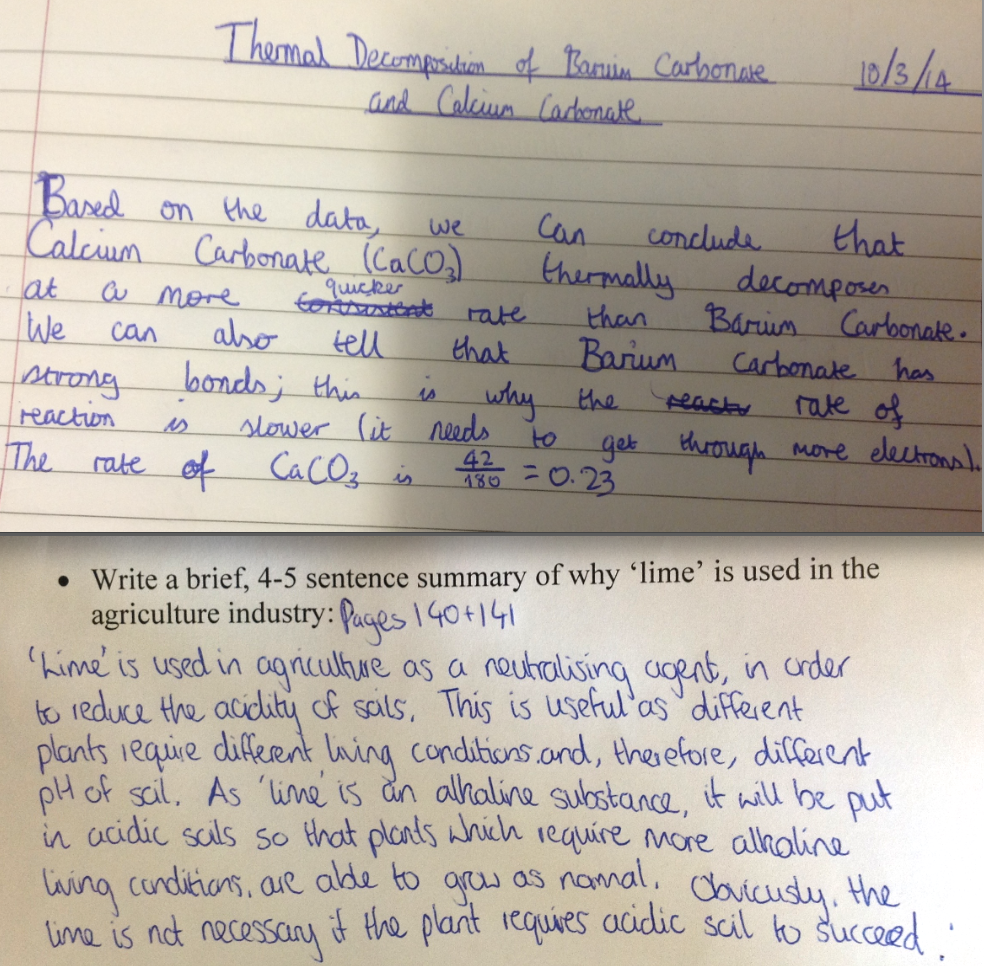 Thermal Decomposition of Barium Carbonate 10/3/14
and Calcium Carbonate
Based on the data, we can conclude that
Calcium Carbonate (CaCO₃) thermally decomposes
at a more quicker rate than Barium Carbonate.
We can also tell that Barium Carbonate has
strong bonds; this is why the react rate of
reaction is slower (it needs to get through more electrons).
The rate of CaCO₃ is 42/180 = 0.23
• Write a brief, 4-5 sentence summary of why ‘lime’ is used in the
agriculture industry: Pages 140+141
'Lime' is used in agriculture as a neutralising agent, in order
to reduce the acidity of soils. This is useful as different
plants require different living conditions and, therefore, different
pH of soil. As 'lime' is an alkaline substance, it will be put
in acidic soils so that plants which require more alkaline
living conditions, are able to grow as normal. Obviously, the
lime is not necessary if the plant requires acidic soil to succeed.